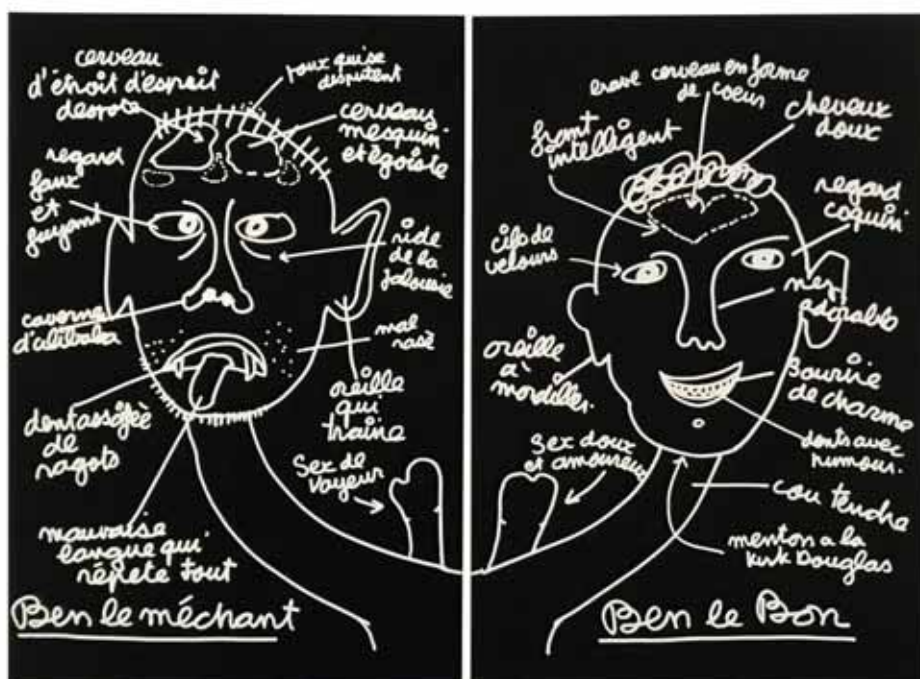 cerveau
d'étroit d'esprit
despote
poux qui se
disputent
cerveau
mesquin
et égoiste
regard
faux
et
fuyant
ride
de la
jalousie
caverne
d'alibaba
mal
rasé
dent assoifée
de
ragots
oreille
qui
traine
Sex de
voyeur
mauvaise
langue qui
répete tout
Ben le méchant
cerveau en forme
de coeur
front
intelligent
cheveux
doux
regard
coquin
cils de
velours
nez
adorable
oreille
a
mordiller.
Sourire
de charme
dents avec
humour.
Sex doux
et amoureux
cou tendre
menton a la
Kirk Douglas
Ben le Bon